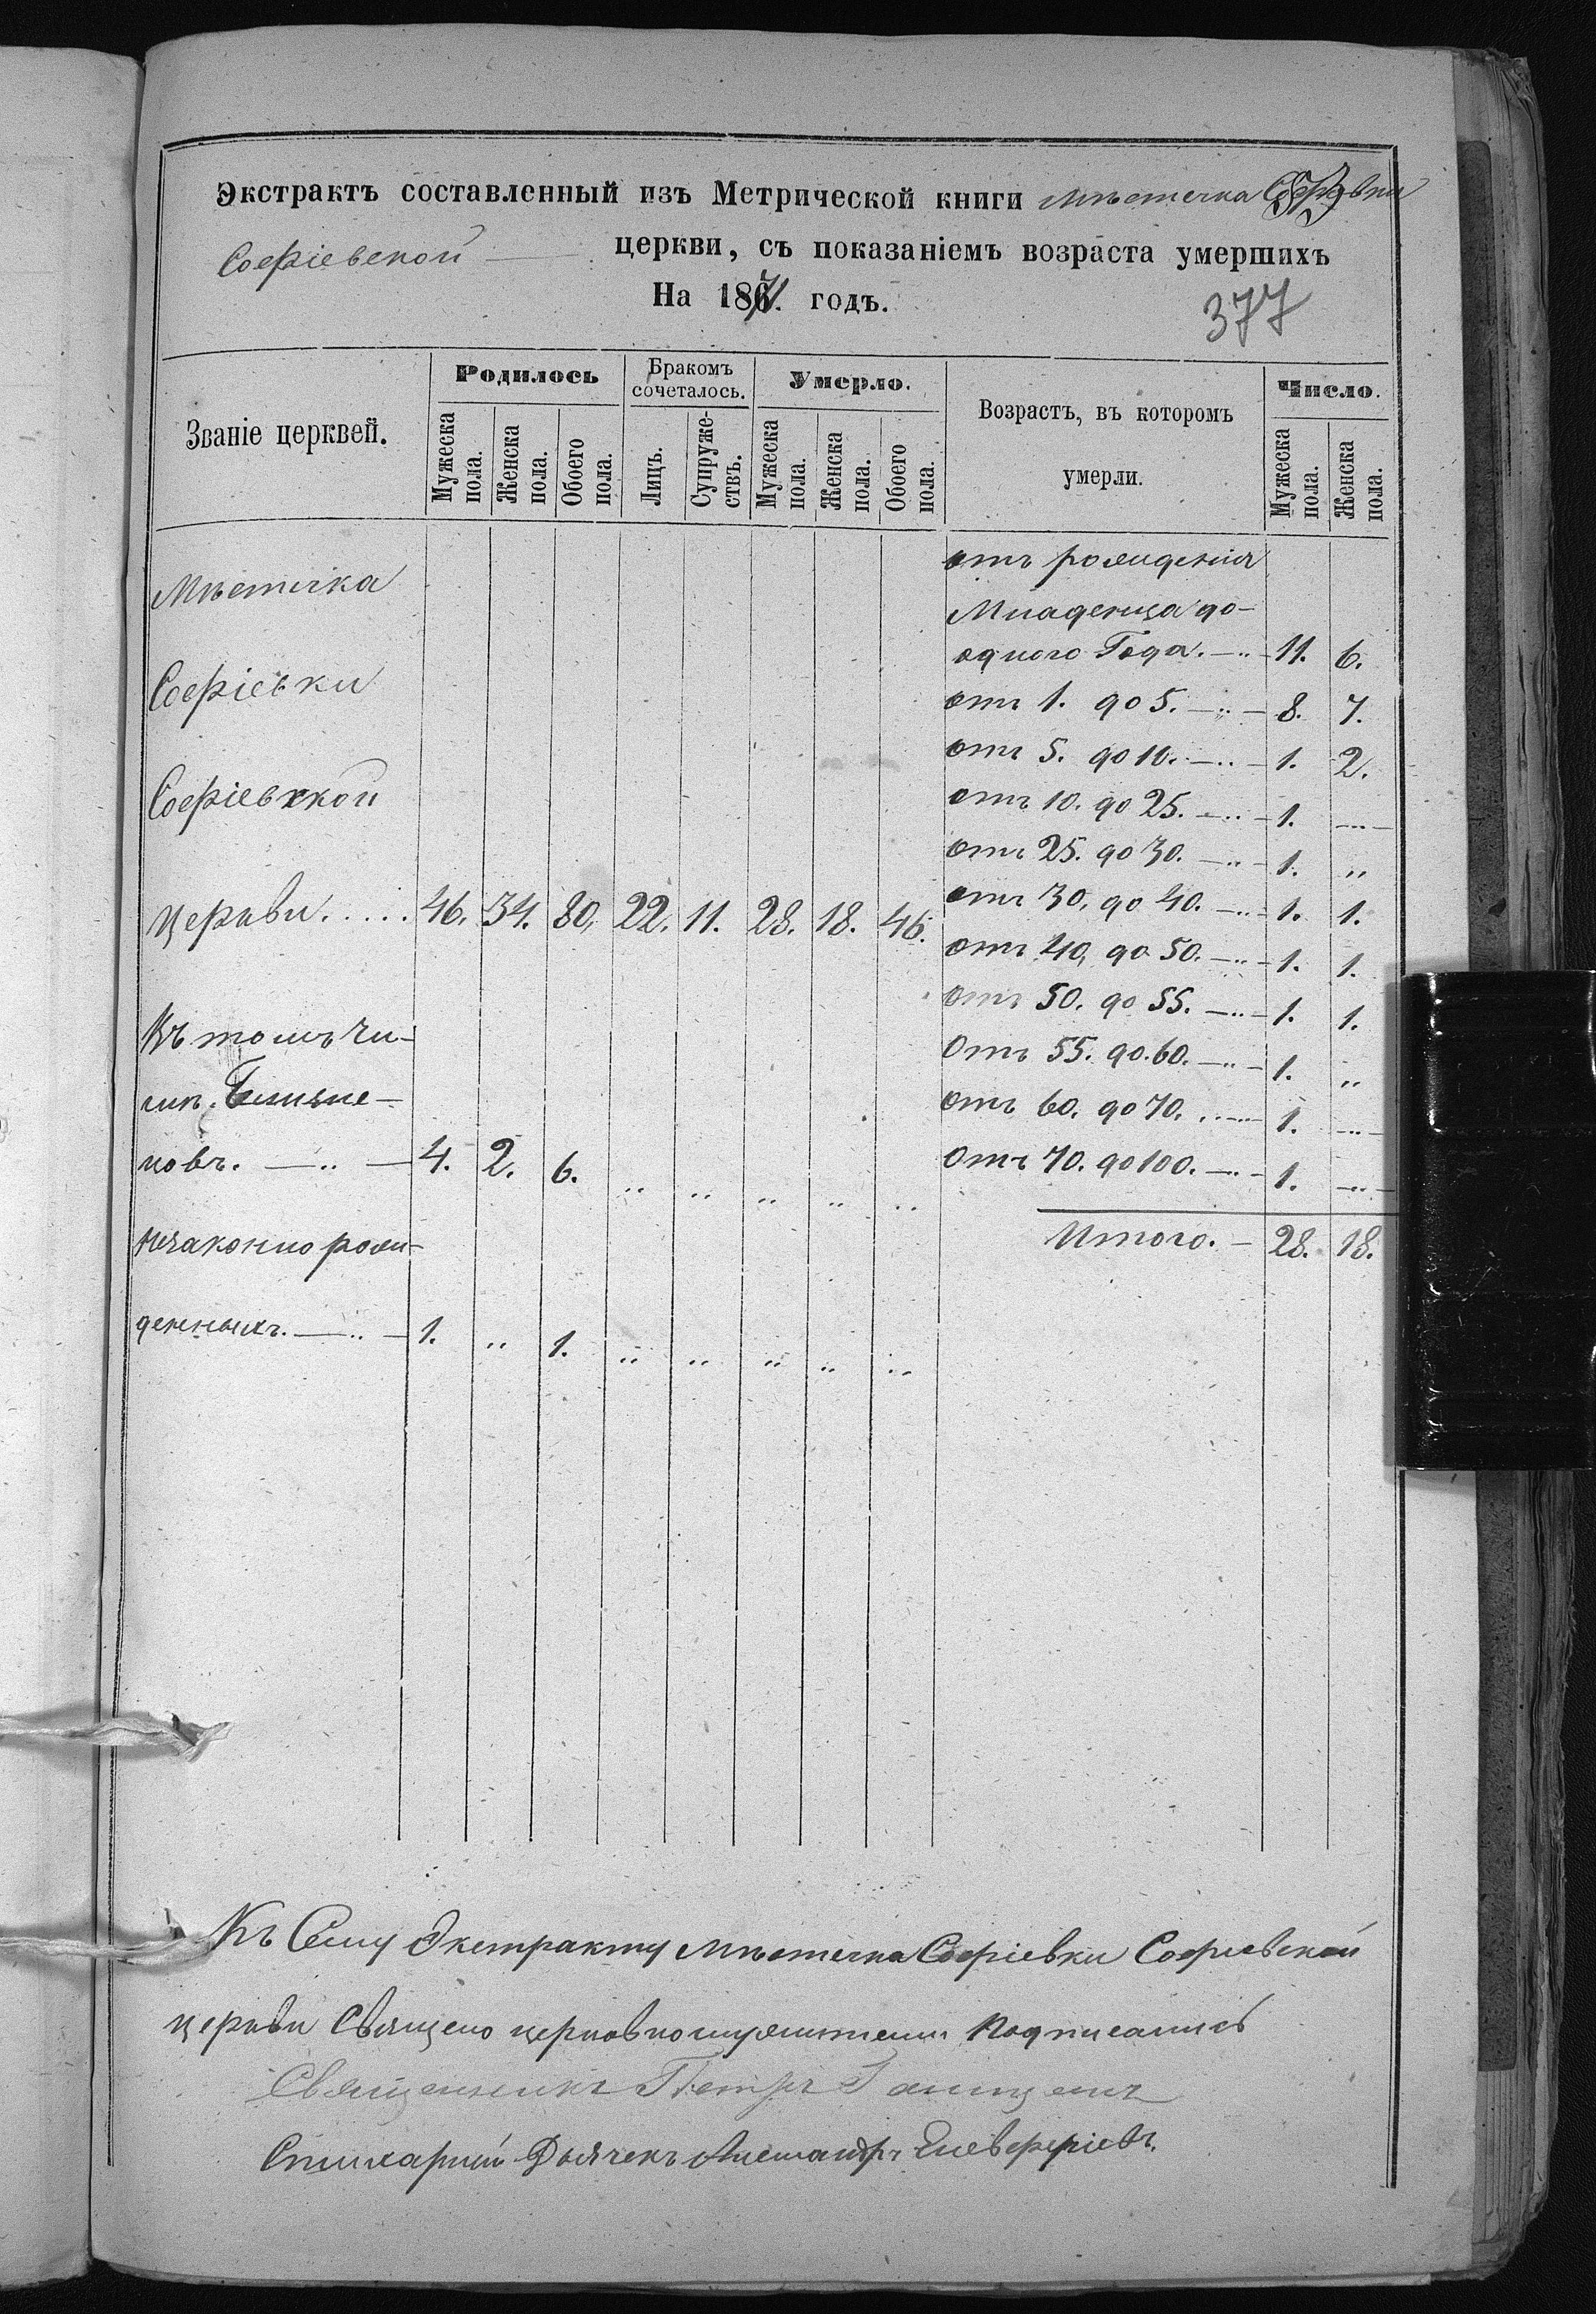 Экстрактъ составленный изъ Метрической книги мѣстечка Софіевки
Софіевской церкви, съ показаніемъ возраста умершихъ
На 1871. годъ.
377
Званіе церквей.
Родилось
Бракомъ сочеталось.
Умерло.
Возрастъ, въ которомъ умерли.
Число.
Мужеска пола. Женска пола. Обоего пола. Лицъ. Супружествъ. Мужеска пола. Женска пола. Обоего пола. Мужеска пола. Женска пола.
Мѣстечка
Софіевки
Софіевской
церкви..... 46. 34. 80. 22. 11. 28. 18. 46.
Въ томъ чи-
слѣ Близне-
цовъ. — „ — 4. 2. 6. „ „ „ „ „
Незаконно рож-
денныхъ. — „ — 1. „ 1. „ „ „ „ „
отъ рожденія
Младенца до-
одного Года. — „ — 11. 6.
отъ 1. до 5. — „ — 8. 7.
отъ 5. до 10. — „ — 1. 2.
отъ 10. до 25. — „ — 1. — „ —
отъ 25. до 30. — „ — 1. „
отъ 30. до 40. — „ — 1. 1.
отъ 40. до 50. — „ — 1. 1.
отъ 50. до 55. — „ — 1. 1.
Отъ 55. до 60. — „ — 1. „
отъ 60. до 70. — „ — 1. — „ —
Отъ 70. до 100. — „ — 1. — „ —
Итого. — 28. 18.
Къ Сему Экстракту мѣстечка Софіевки Софіевской
церкви Священо церковнослужители Подписались
Священникъ Петръ
Стихарный Дьячекъ Александръ Елевферіевъ.